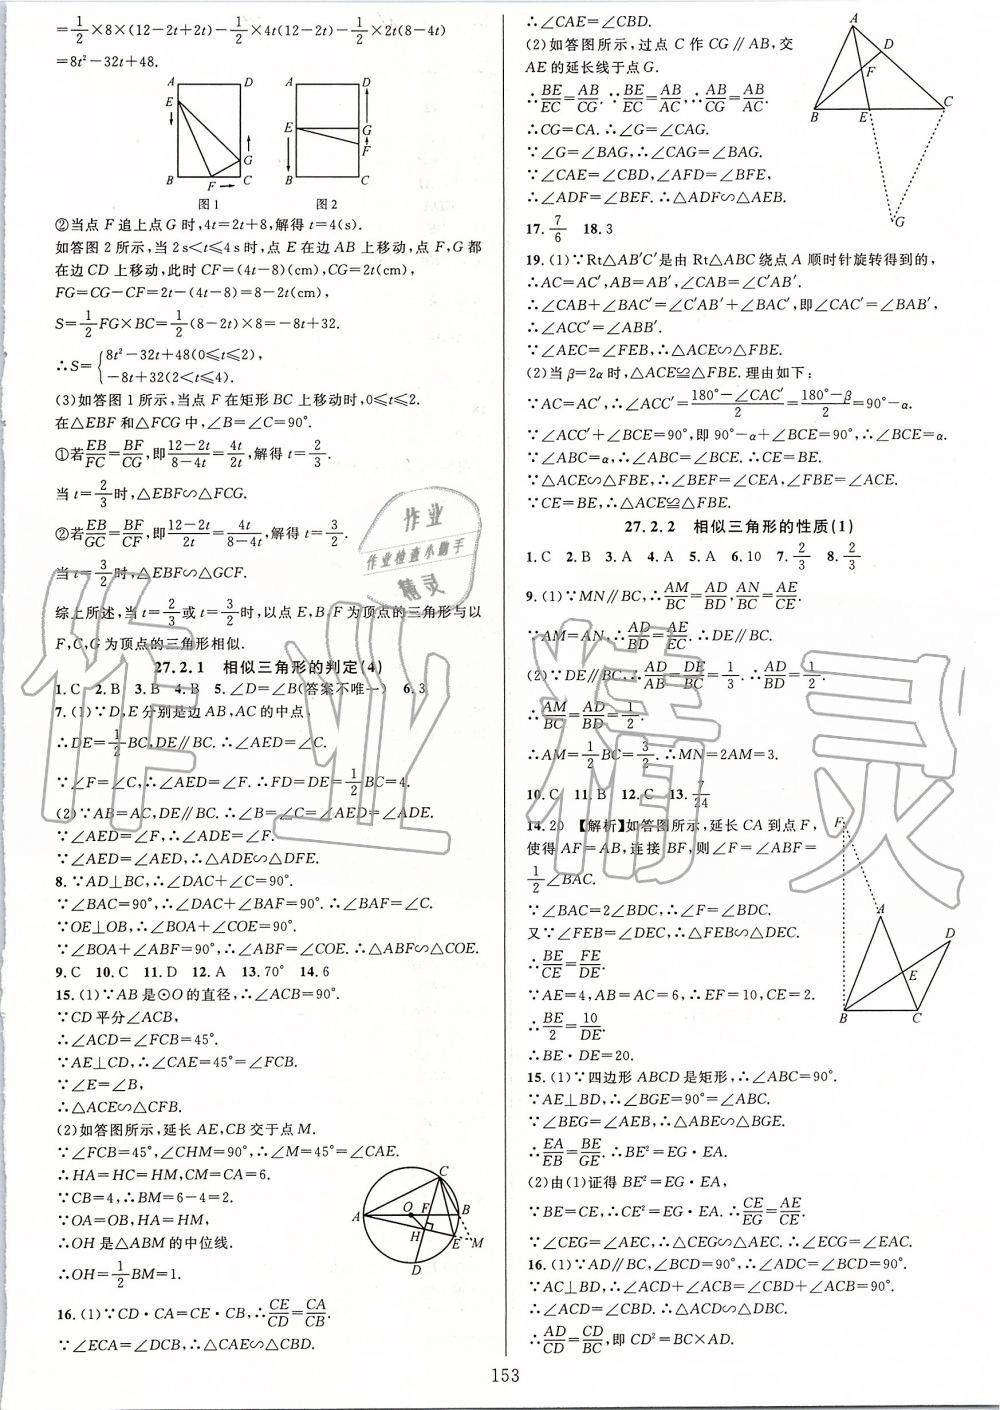 =1/2×8×(12-2t+2t)-1/2×4t(12-2t)-1/2×2t(8-4t)
=8t²-32t+48.
A D E G B F C
图1
A D E G F B C
图2
②当点F追上点G时,4t=2t+8,解得t=4(s).
如答图2所示,当2s<t≤4s时,点E在边AB上移动,点F,G都
在边CD上移动,此时CF=(4t-8)(cm),CG=2t(cm),
FG=CG-CF=2t-(4t-8)=8-2t(cm),
S=1/2FG×BC=1/2(8-2t)×8=-8t+32.
∴S={8t²-32t+48(0≤t≤2),
-8t+32(2<t≤4).
(3)如答图1所示,当点F在矩形BC上移动时,0≤t≤2.
在△EBF和△FCG中,∠B=∠C=90°.
①若EB/FC=BF/CG,即(12-2t)/(8-4t)=4t/2t,解得t=2/3.
当t=2/3时,△EBF∽△FCG.
②若EB/GC=BF/CF,即(12-2t)/2t=4t/(8-4t),解得t=3/2.
当t=3/2时,△EBF∽△GCF.
综上所述,当t=2/3或t=3/2时,以点E,B,F为顶点的三角形与以
F,C,G为顶点的三角形相似.
27.2.1 相似三角形的判定(4)
1.C 2.B 3.B 4.B 5.∠D=∠B(答案不唯一) 6.3
7.(1)∵D,E分别是边AB,AC的中点,
∴DE=1/2BC,DE∥BC.∴∠AED=∠C.
∵∠F=∠C,∴∠AED=∠F.∴FD=DE=1/2BC=4.
(2)∵AB=AC,DE∥BC.∴∠B=∠C=∠AED=∠ADE.
∵∠AED=∠F,∴∠ADE=∠F.
∵∠AED=∠AED,∴△ADE∽△DFE.
8.∵AD⊥BC,∴∠DAC+∠C=90°.
∵∠BAC=90°,∴∠DAC+∠BAF=90°.∴∠BAF=∠C.
∵OE⊥OB,∴∠BOA+∠COE=90°.
∵∠BOA+∠ABF=90°,∴∠ABF=∠COE.∴△ABF∽△COE.
9.C 10.C 11.D 12.A 13.70° 14.6
15.(1)∵AB是⊙O的直径,∴∠ACB=90°.
∵CD平分∠ACB,
∴∠ACD=∠FCB=45°.
∵AE⊥CD,∴∠CAE=45°=∠FCB.
∵∠E=∠B,
∴△ACE∽△CFB.
(2)如答图所示,延长AE,CB交于点M.
∵∠FCB=45°,∠CHM=90°,∴∠M=45°=∠CAE.
∴HA=HC=HM,CM=CA=6.
∵CB=4,∴BM=6-4=2.
∵OA=OB,HA=HM,
∴OH是△ABM的中位线.
∴OH=1/2BM=1.
C A O F B H E M D
16.(1)∵CD·CA=CE·CB,∴CE/CD=CA/CB.
∵∠ECA=∠DCB,∴△CAE∽△CBD.
∴∠CAE=∠CBD.
(2)如答图所示,过点C作CG∥AB,交
AE的延长线于点G.
∴BE/EC=AB/CG.∵BE/EC=AB/AC,∴AB/CG=AB/AC.
∴CG=CA.∴∠G=∠CAG.
∵∠G=∠BAG,∴∠CAG=∠BAG.
∵∠CAE=∠CBD,∠AFD=∠BFE,
∴∠ADF=∠BEF.∴△ADF∽△AEB.
A D F B E C G
17.7/6 18.3
19.(1)∵Rt△AB′C′是由Rt△ABC绕点A顺时针旋转得到的,
∴AC=AC′,AB=AB′,∠CAB=∠C′AB′.
∴∠CAB+∠BAC′=∠C′AB′+∠BAC′,即∠CAC′=∠BAB′,
∴∠ACC′=∠ABB′.
∵∠AEC=∠FEB,∴△ACE∽△FBE.
(2)当β=2α时,△ACE≌△FBE.理由如下:
∵AC=AC′,∴∠ACC′=(180°-∠CAC′)/2=(180°-β)/2=90°-α.
∵∠ACC′+∠BCE=90°,即90°-α+∠BCE=90°,∴∠BCE=α.
∵∠ABC=α,∴∠ABC=∠BCE.∴CE=BE.
∵△ACE∽△FBE,∴∠BEF=∠CEA,∠FBE=∠ACE.
∵CE=BE,∴△ACE≌△FBE.
27.2.2 相似三角形的性质(1)
1.C 2.B 3.A 4.A 5.A 6.10 7.2/3 8.2/3
9.(1)∵MN∥BC,∴AM/BC=AD/BD,AN/BC=AE/CE.
∵AM=AN,∴AD/BD=AE/EC.∴DE∥BC.
(2)∵DE∥BC,∴AD/AB=DE/BC=1/3.
∴AM/BC=AD/BD=1/2.
∴AM=1/2BC=3/2.∴MN=2AM=3.
10.C 11.B 12.C 13.7/24
14.20 【解析】如答图所示,延长CA到点F,
使得AF=AB,连接BF,则∠F=∠ABF=
1/2∠BAC.
∵∠BAC=2∠BDC,∴∠F=∠BDC.
又∵∠FEB=∠DEC,∴△FEB∽△DEC.
∴BE/CE=FE/DE.
∵AE=4,AB=AC=6,∴EF=10,CE=2.
∴BE/2=10/DE.
∴BE·DE=20.
F A D E B C
15.(1)∵四边形ABCD是矩形,∴∠ABC=90°.
∵AE⊥BD,∴∠BGE=90°=∠ABE.
∵∠BEG=∠AEB,∴△ABE∽△BGE.
∴EA/EB=BE/GE.∴BE²=EG·EA.
(2)由(1)证得BE²=EG·EA,
∵BE=CE,∴CE²=EG·EA.∴CE/EG=AE/CE.
∵∠CEG=∠AEC,∴△CEG∽△AEC.∴∠ECG=∠EAC.
16.(1)∵AD∥BC,∠BCD=90°,∴∠ADC=∠BCD=90°.
∵AC⊥BD,∴∠ACD+∠ACB=∠CBD+∠ACB=90°.
∴∠ACD=∠CBD.∴△ACD∽△DBC.
∴AD/CD=CD/BC,即CD²=BC×AD.
153
作业
作业检查小助手
精灵
作业精灵